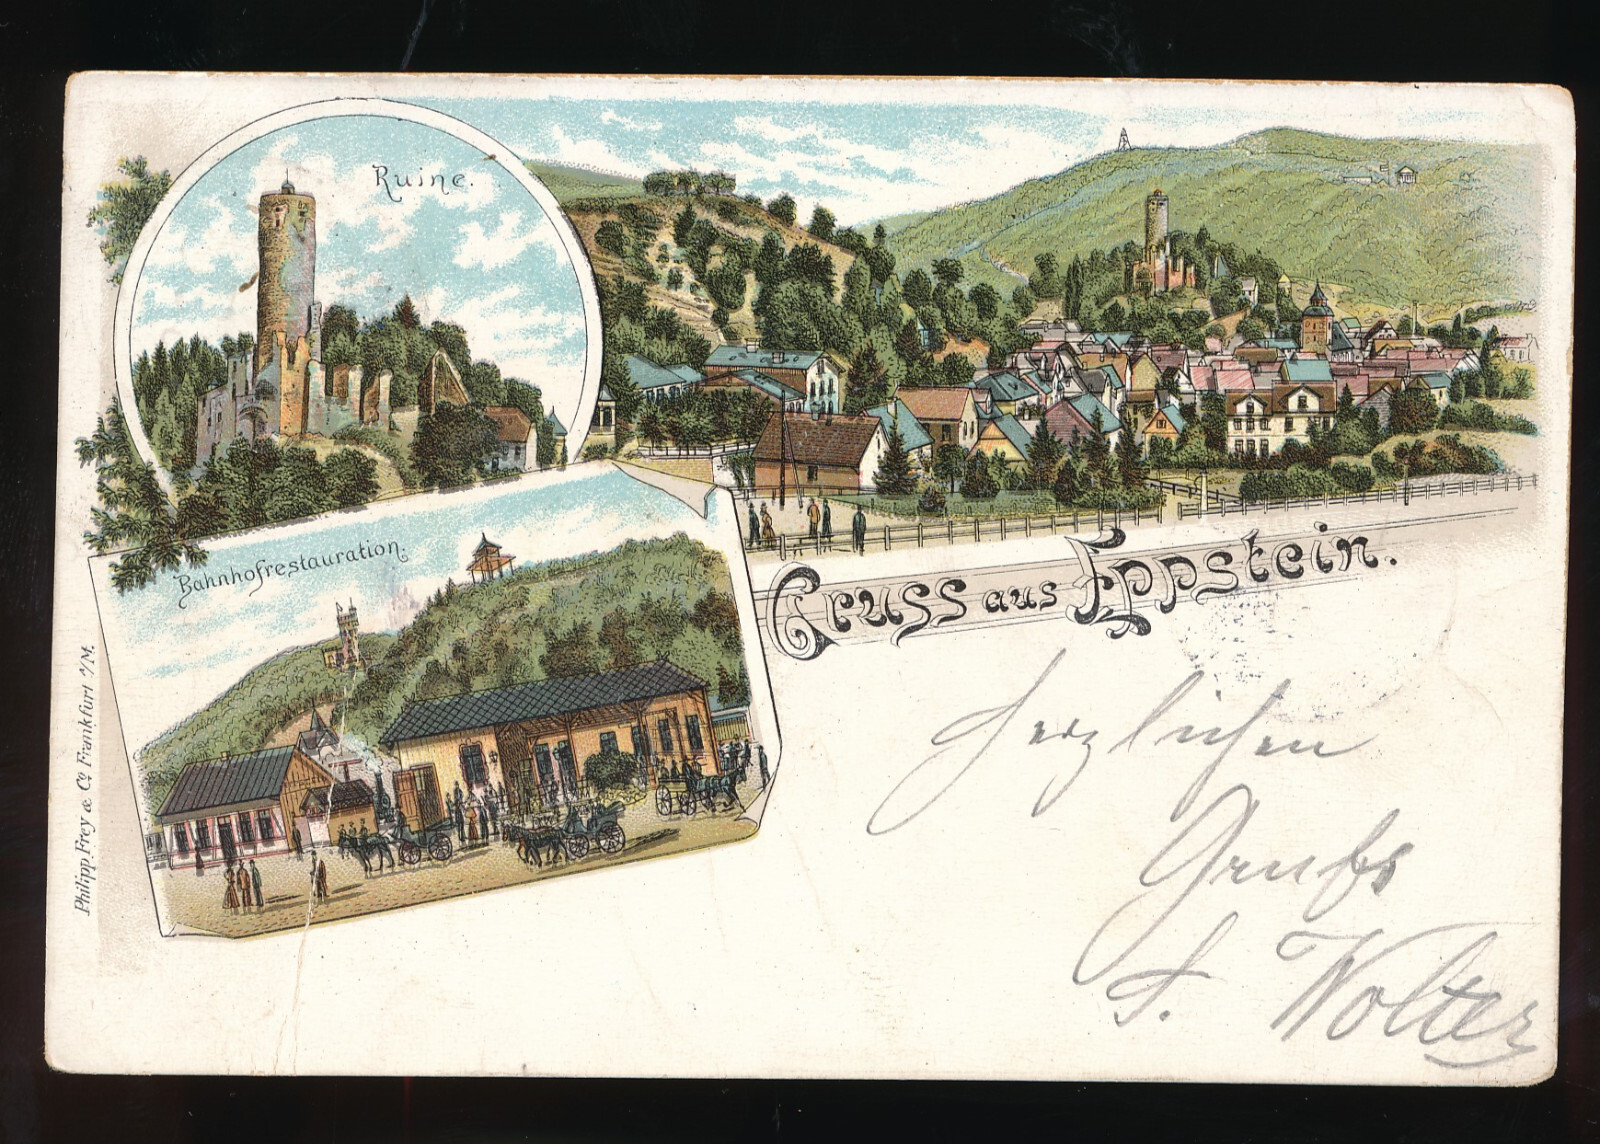 Ruine.
Bahnhofrestauration.
Gruss aus Eppstein.
Philipp Frey & Co Frankfurt a/M.
Herzlichen
Gruß
Wolter